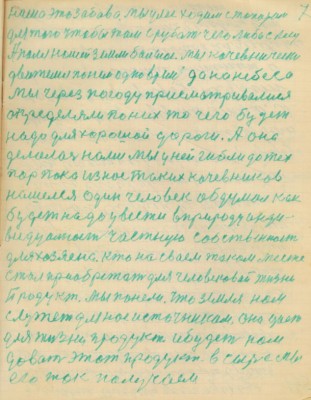 7
наша это забава мы у ней ходим с топорам
для того чтобы там срубать чего либо с кому
А роля нашей земли большое. мы кочевники по
двигалися по ней одно время да на небеса
мы через погоду присматривалися
определяли по ней то чего будет
надо для хорошой дороги. А она
делалась нами мы у ней гибли до тех
пор пока из нас таких кочевников
нашелся один человек обдумал как
будет надо увести в природу инди-
видуалост частную собственост
для хозяена, кто на своем таком месте
стал приобретать для человековой жизни
продукт. Мы поняли, что земля нам
служет для нас источником, она дает
для жизни продукт и будет нам
довать этот продукт. в сырье мы
его так получаем